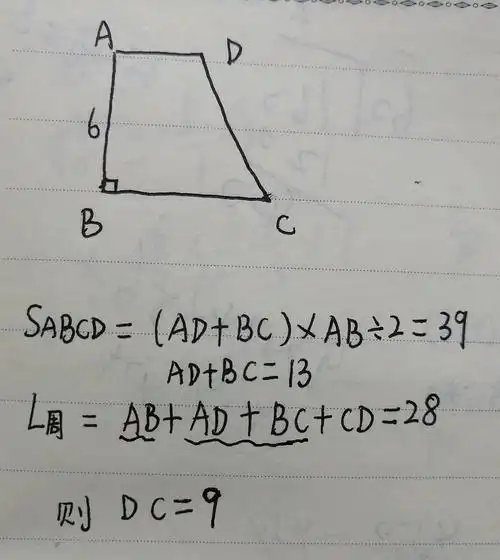 A
D
6
B
C
SABCD = (AD+BC)×AB÷2=39
AD+BC=13
L周 = AB+AD+BC+CD=28
则 DC=9